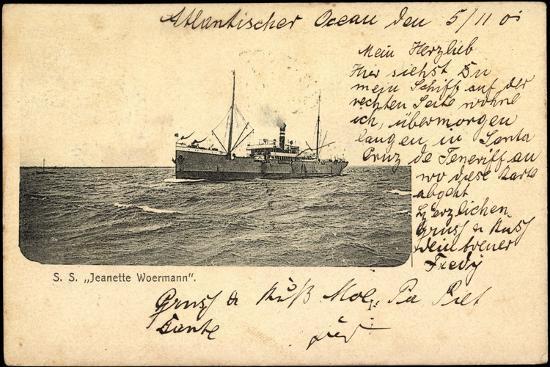 Atlantischer Ocean den 5/11 01
Mein Herzlieb
Hier siehst Du
mein Schiff auf der
rechten Seite wohne
ich, übermorgen
langen in Santa
Cruz de Teneriff an
wo diese Karte
abgeht
Herzlichen
Gruss & Kuss
Dein treuer
Fredy
S. S. „Jeanette Woermann".
Gruss & Kuß
Tante